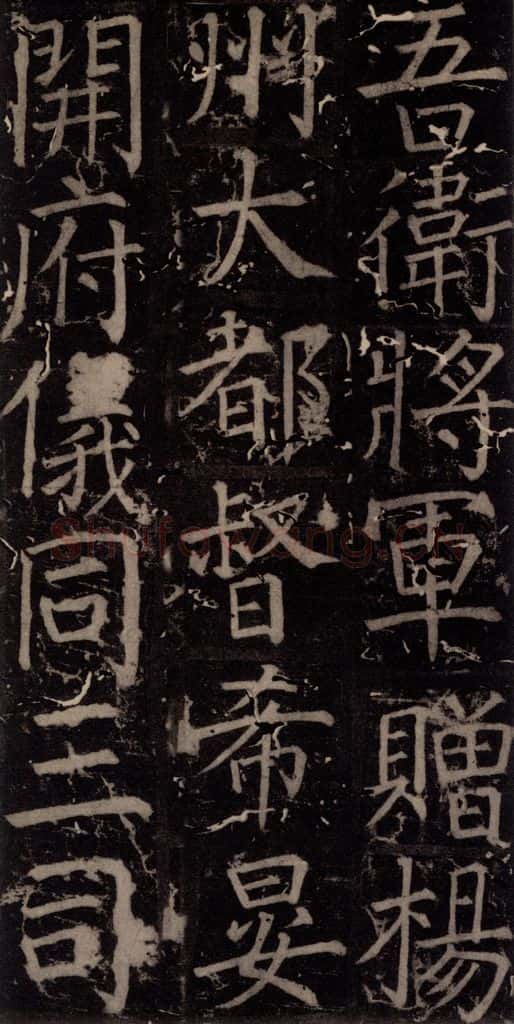 吾衛將軍贈楊
州大都督希晏
開府儀同三司
Shufawang.CN